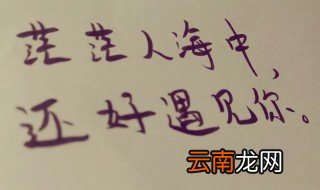 茫茫人海中,
还好遇见你。
云南龙网